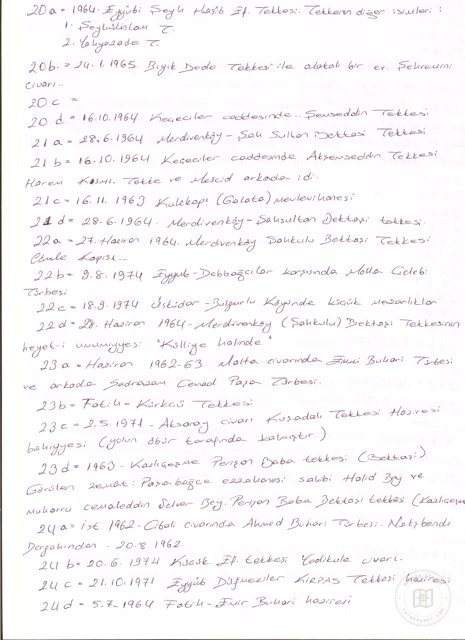 20a = 1964. Eyyübi Şeyh Hasib Ef. Tekkesi. Tekkenin diğer isimleri :
1. Şeyhülislam T.
2. Yahyazade T.
20b. = 24.1.1965 Bıyık Dede Tekkesi ile alakalı bir ev. Şehremini
civarı..
20c =
20d = 16.10.1964 Keçeciler caddesinde. Şemseddin Tekkesi
21a = 28.6.1964 Merdivenköy - Şah Sultan Bektaşi Tekkesi
21b = 16.10.1964 Keçeciler caddesinde Akşemseddin Tekkesi
Harem Kısmı. Tekke ve Mescid arkada idi.
21c = 16.11.1963 Kulekapı (Galata) mevlevihanesi
21d = 28.6.1964. Merdivenköy - Şahsultan Bektaşi tekkesi.
22a = 27. Haziran 1964. Merdivenköy Şahkulu Bektaşi Tekkesi
Cümle Kapısı...
22b = 9.8.1974 Eyyub - Debbağcılar karşısında Molla Çelebi
Türbesi
22c = 18.9.1974 Üsküdar - Bulgurlu Köyünde küçük mezarlıklar
22d = 28. Haziran 1964 - Merdivenköy (Şahkulu) Bektaşi Tekkesinin
heyet-i umumiyyesi "Külliye halinde"
23a = Haziran 1962-63 Malta civarında Emir Buhari Türbesi
ve arkada Sadrazam Cevad Paşa Türbesi.
23b = Fatih - Kürkçü Tekkesi
23c = 2.5.1971 - Aksaray civarı Kuşadalı Tekkesi Haziresi
bakıyyesi (yolun öbür tarafında kalmıştır.)
23d = 1963 - Kazlıçeşme Perişan Baba tekkesi (Bektaşi)
Görülen zevat: Paşabağçe eczahanesi sahibi Halid Bey ve
Cemaleddin Server Bey. Perişan Baba Bektaşi tekkesi (Kazlıçeşme
24a = ist 1962 - Cibali civarında Ahmed Buhari Türbesi. Nakşibendi
Dergahından - 20.8.1962.
24b = 20.6.1974 Küçük Ef. tekkesi Yedikule civarı.
24c = 21.10.1971 Eyyüb Düğmeciler KIRPAS Tekkesi haziresi
24d = 5.7.1964 Fatih - Emir Buhari haziresi